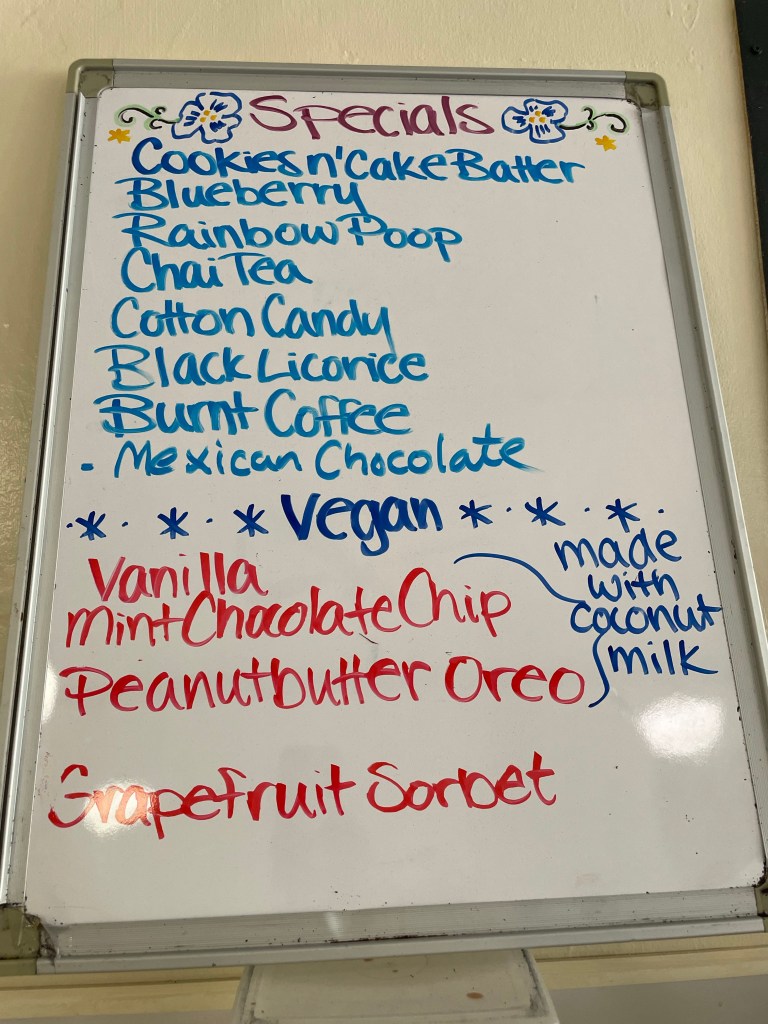 Specials
Cookies n' Cake Batter
Blueberry
Rainbow Poop
Chai Tea
Cotton Candy
Black Licorice
Burnt Coffee
- Mexican Chocolate
Vegan
Vanilla
Mint Chocolate Chip
Peanutbutter Oreo
made
with
coconut
milk
Grapefruit Sorbet